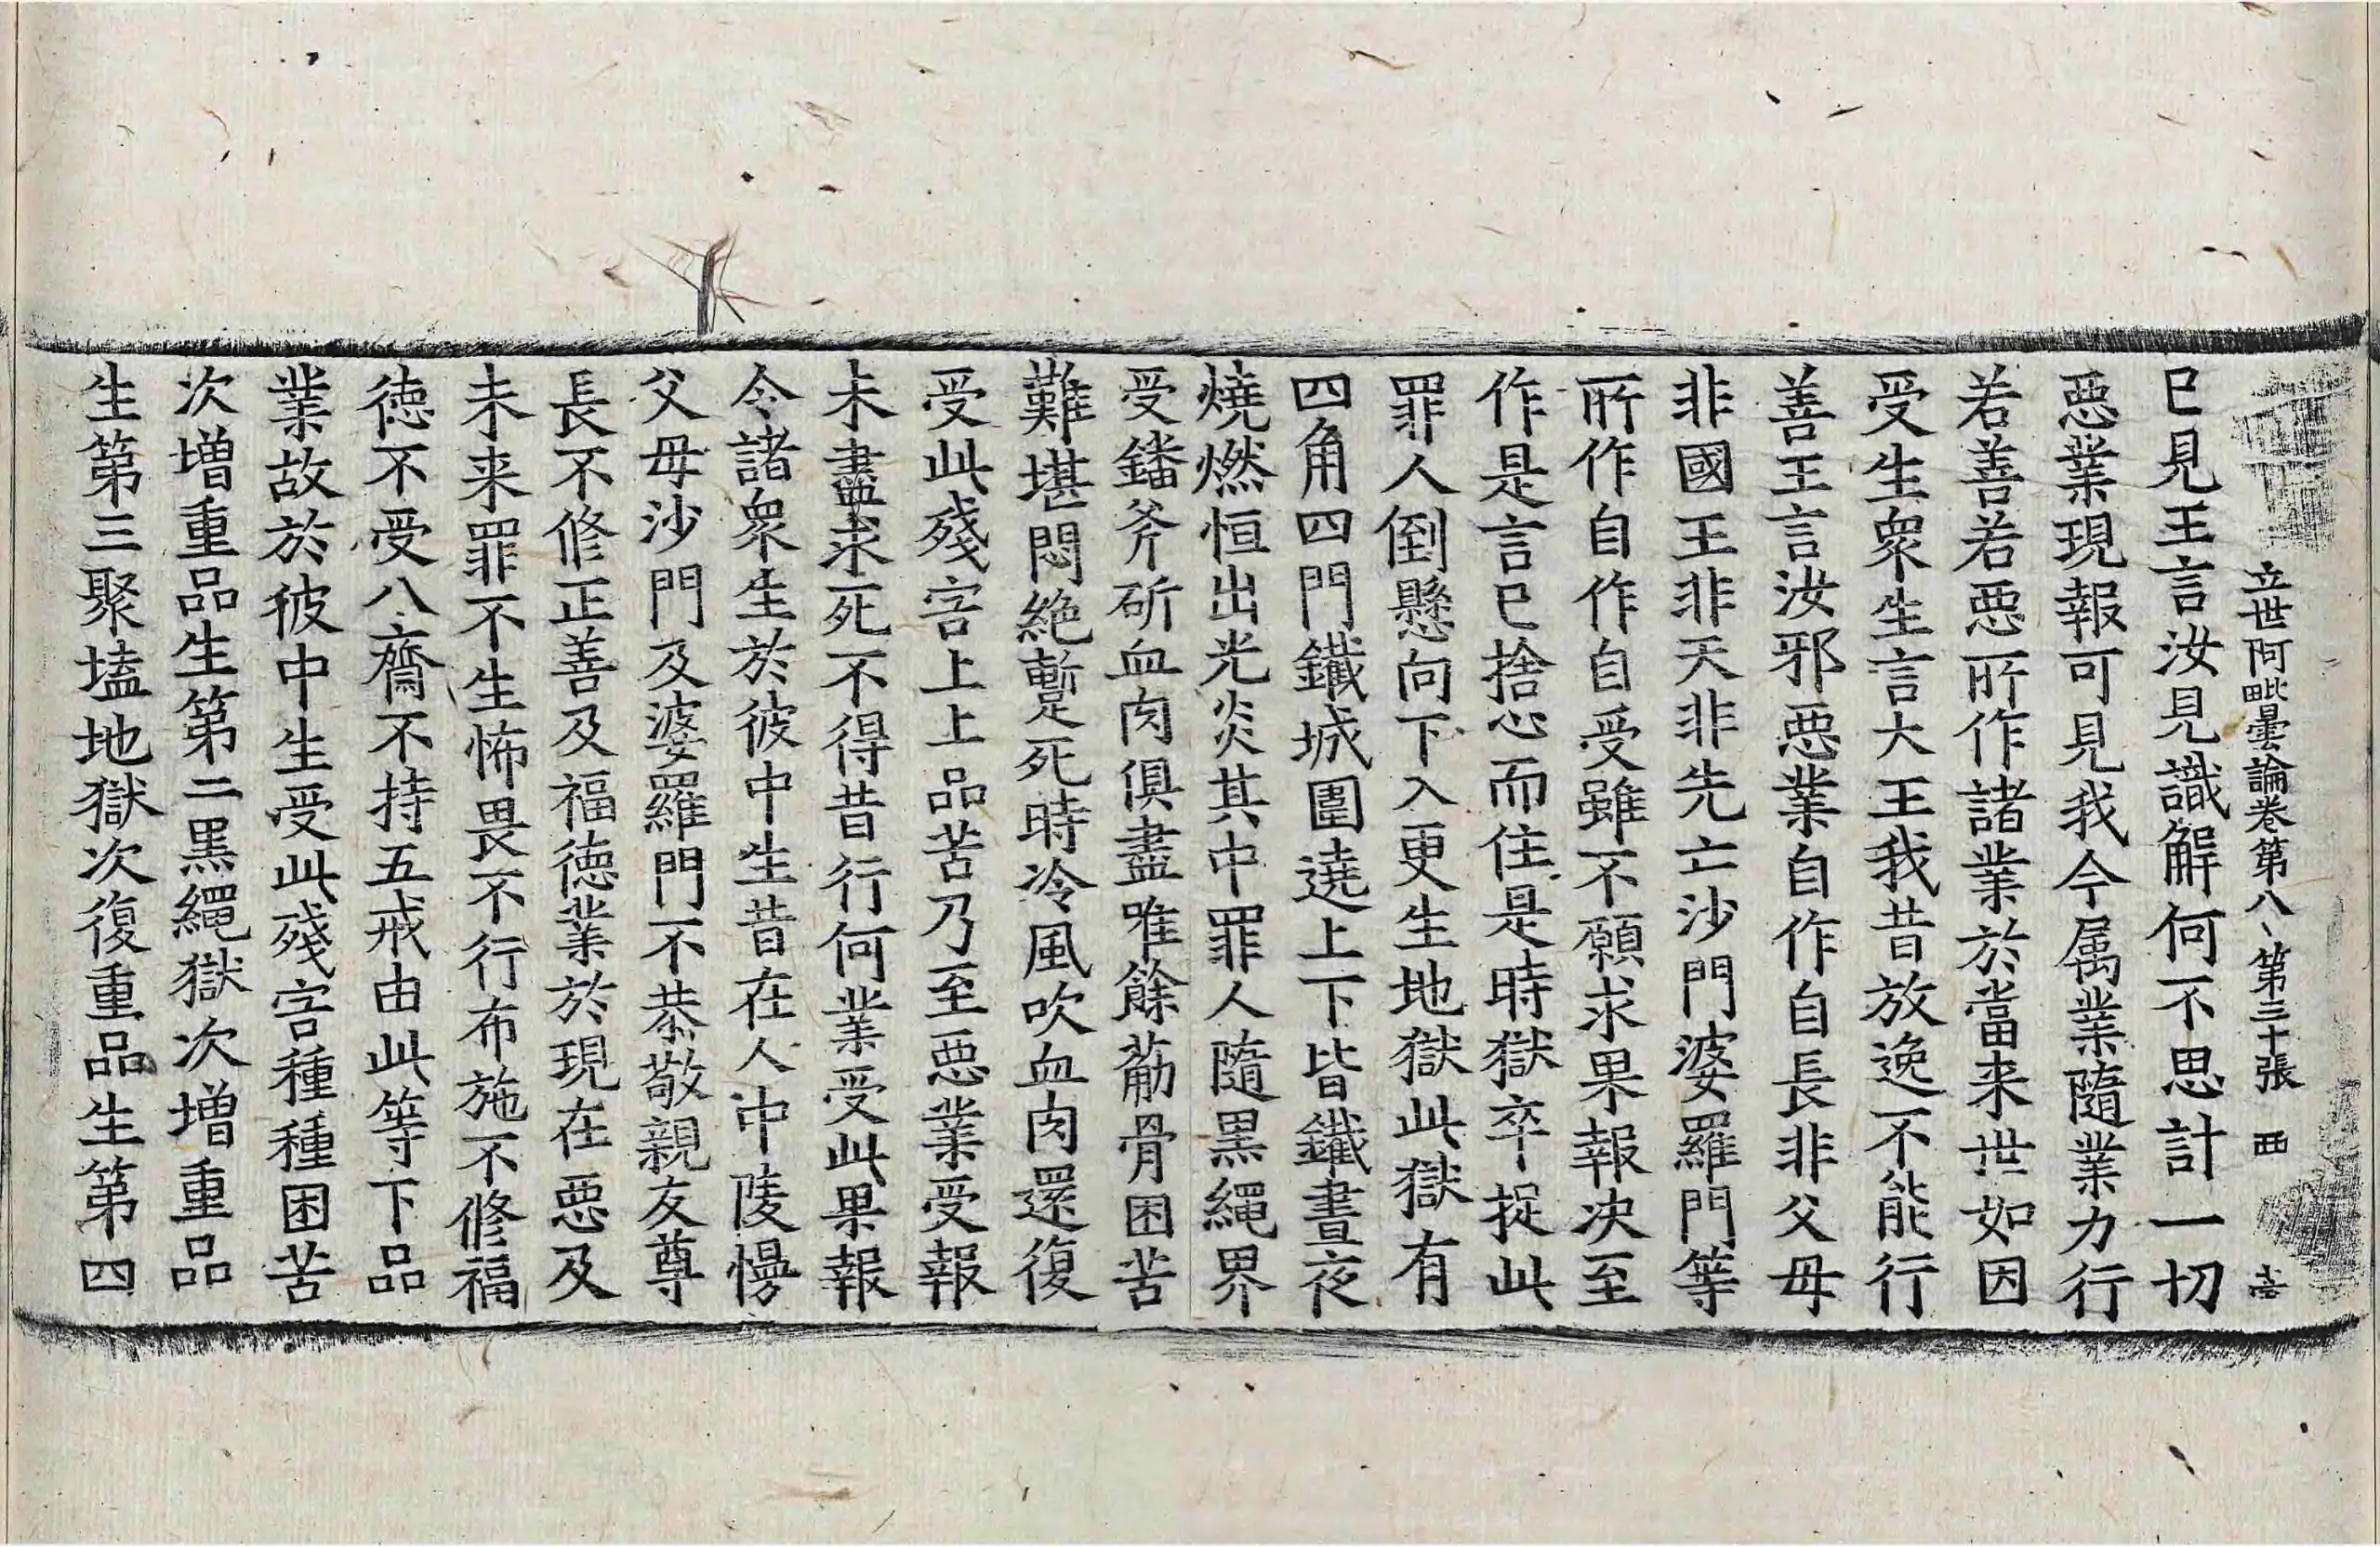 立世阿毗曇論卷第八、第三十張 西
已見王言汝見識解何不思計一切
惡業現報可見我今属業隨業力行
若善若惡所作諸業於當来世如因
受生衆生言大王我昔放逸不能行
善王言汝邪惡業自作自長非父母
非國王非天非先亡沙門婆羅門等
所作自作自受雖不願求果報决至
作是言已捨心而住是時獄卒捉此
罪人倒懸向下入更生地獄此獄有
四角四門鐵城圍遶上下皆鐵晝夜
燒燃恒出光炎其中罪人隨黒繩界
受鐇斧斫血肉俱盡唯餘觔骨困苦
難堪悶絶蹔死時冷風吹血肉還復
受此殘害上上品苦乃至惡業受報
未盡求死不得昔行何業受此果報
今諸衆生於彼中生昔在人中陵慢
父母沙門及婆羅門不恭敬親友尊
長不修正善及福德業於現在惡及
未来罪不生怖畏不行布施不修福
徳不受八齋不持五戒由此等下品
業故於彼中生受此殘害種種困苦
次増重品生第二黒繩獄次増重品
生第三聚壒地獄次復重品生第四